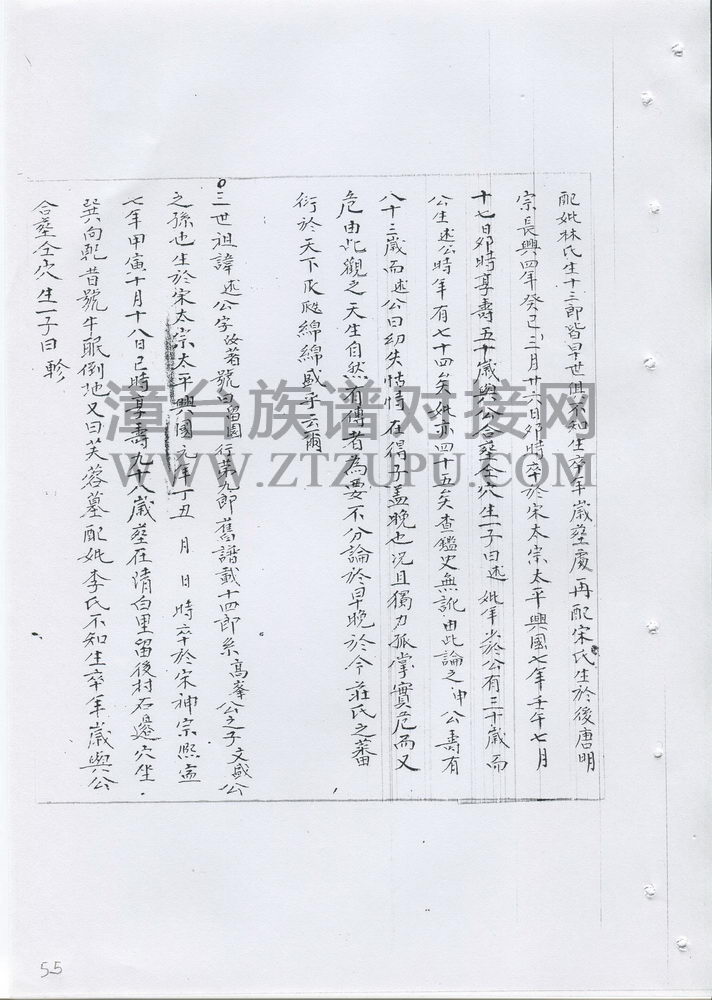 配妣林氏生十三郎皆早世俱不知生卒年歲塟處再配宋氏生於後唐明
宗長興四年癸巳三月廿六日卯時卒於宋太宗太平興國七年壬午七月
十七日卯時享壽五十歲與公合塟仝穴生一子曰述妣年少於公有三十歲而
公生述公時年有七十四矣妣亦四十五矣查鑑史無訛由此論之申公壽有
八十三歲而述公曰幼失怙恃在得子盖晚也况且獨力孤掌實危而又
危由此觀之天生自然有傳者為要不分論於早晚於今莊氏之蕃
衍於天下瓜瓞綿綿盛乎云爾
三世祖諱述公字汝著號曰留園行第九郎舊譜載十四郎系高峯公之子文盛公
之孫也生於宋太宗太平興國元年丁丑 月 日 時卒於宋神宗熙寧
七年甲寅十月十八日巳時享壽九十八歲塟在清白里留後村石邊穴坐
巽向乾昔號牛眠倒地又曰芙蓉墓配妣李氏不知生卒年歲與公
合塟仝穴生一子曰軫
漳台族谱对接网
WWW.ZTZUPU.COM
55